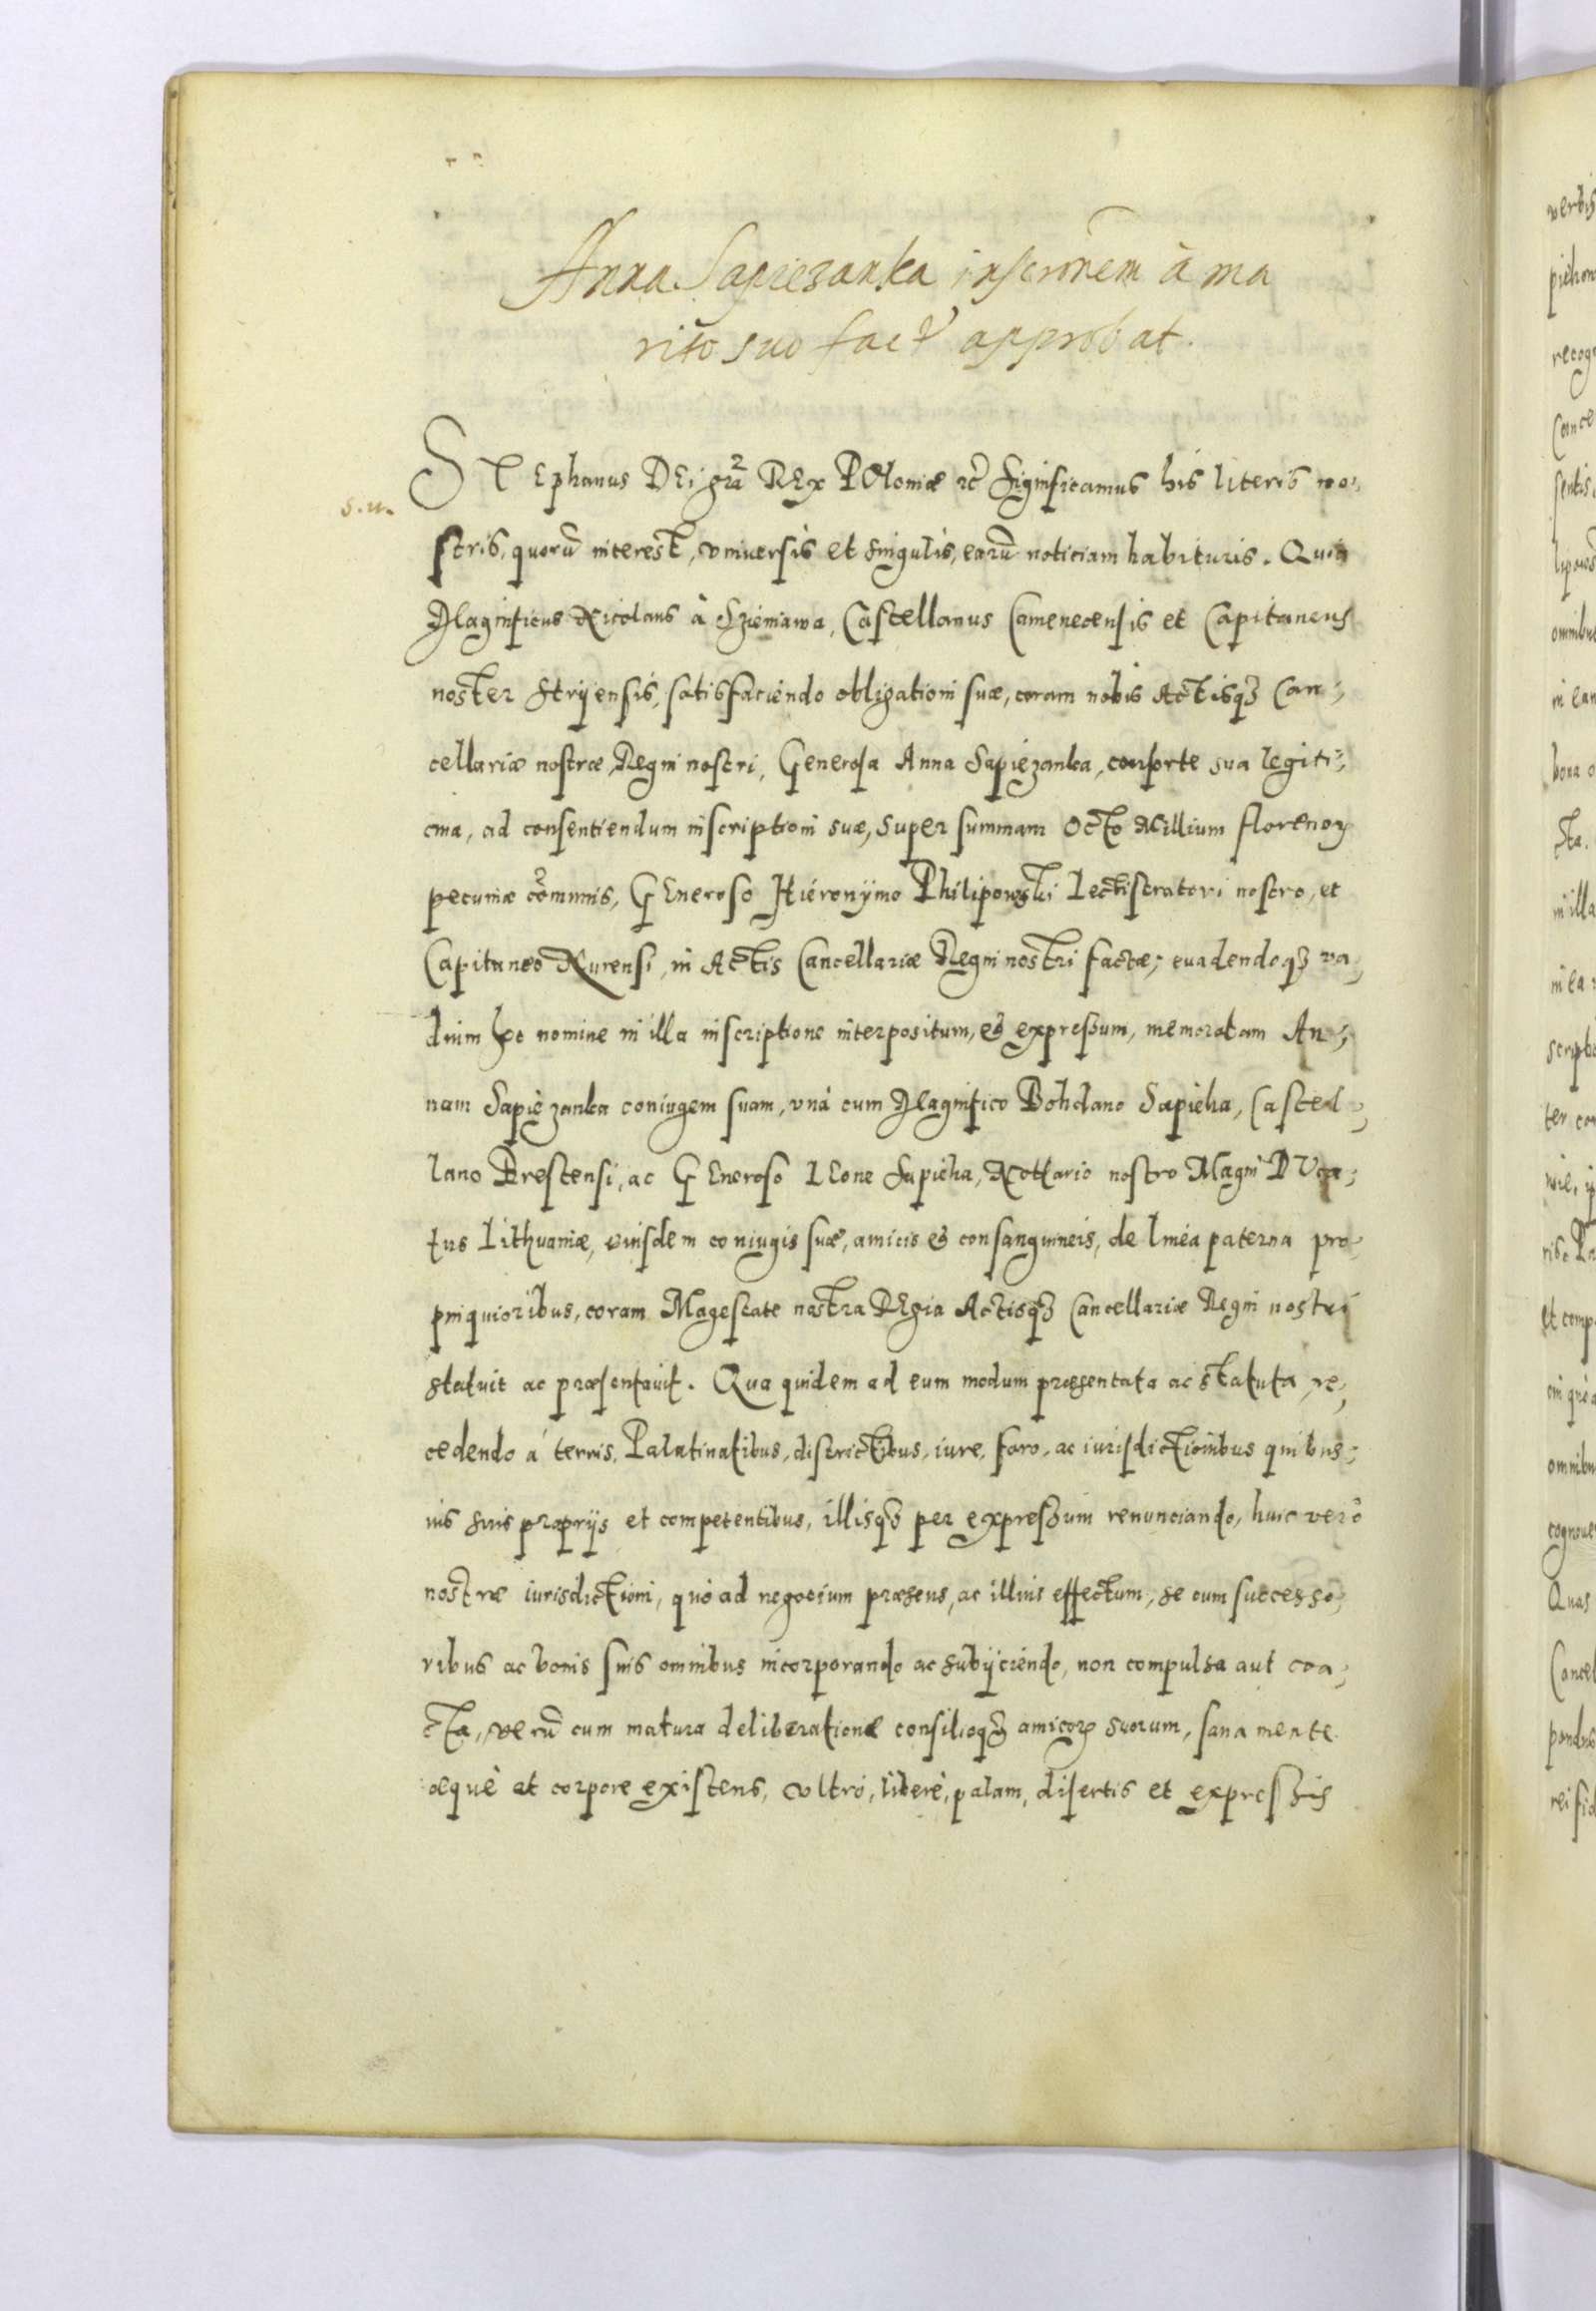 Anna Sapiezanka inscrionem à ma
rito suo fact approbat.
s.n.
STEphanus DEi gra REx POloniæ rc Significamus his literis no,
stris, quorũ interest, vniuersis et singulis, earũ noticiam habituris. Quia
Magnificus Nicolaus à Szieniawa, Castellanus Camenecensis et Capitaneus
noster Stryensis, satisfaciendo obligationi suæ, coram nobis Actisq3 Can,
cellariæ nostræ Regni nostri, Generosa Anna Sapiezanka, consorte sua legiti,
ma, ad consentiendum inscriptioni suæ, super summam Octo Millium floreno2
pecuniæ cõmunis, GEneroso Hieronÿmo Philipowski Lectisternatori nostro, et
Capitaneo Nurensi, in Actis Cancellariæ Regni nostri factæ; euadendoq3 va,
dium hoc nomine in illa inscriptione interpositum, & expressum, memoratam An,
nam Sapiezanka coniugem suam, vnà cum Magnifico Bohdano Sapieha, Castel,
lano Brestensi, ac GEneroso LEone Sapieha, Notario nostro Magni DUca,
tus Lithuaniæ, eiusdem coniugis suæ, amicis & consanguineis, de linea paterna pro,
pinquioribus, coram Magestate nostra REgia Actisq3 Cancellariæ Regni nostri
statuit ac præsentauit. Qua quidem ad eum modum præsentata ac statuta, re,
cedendo à terris, Palatinatibus, districtibus, iure, foro, ac iurisdictionibus quibus,
uis suis proprijs et competentibus, illisq3 per expressum renunciando, huic verò
nostræ iurisdictioni, quò ad negocium præsens, ac illius effectum, se cum successo,
ribus ac bonis suis omnibus incorporando ac subijciendo, non compulsa aut coa,
cta, verũ cum matura deliberatione consilioq3 amico2 suorum, sana mente
æquè et corpore existens, vltrò, liberè, palam, disertis et expressis